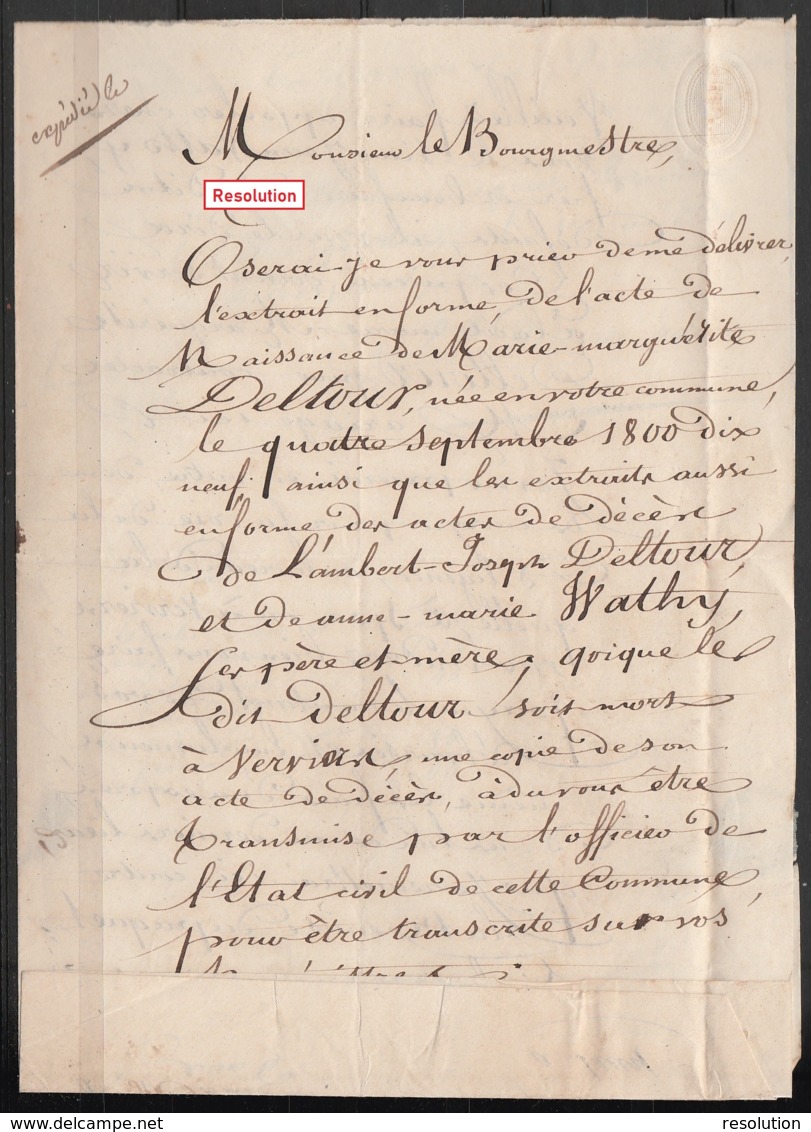 expédié le
Monsieur le Bourgmestre,
Resolution
Oserai-je vous prier de me délivrer,
l'extrait en forme, de l'acte de
Naissance de Marie-marguérite
Deltour, née en votre commune,
le quatre septembre 1800 dix
neuf, ainsi que les extraits aussi
en forme, des actes de décès
de Lambert-Joseph Deltour,
et de anne-marie Wathy,
ses père et mère; qoique le
dit Deltour soit mort
à Verviers, une copie de son
acte de décès, à du vous être
transmise par l'officier de
l'Etat civil de cette Commune,
pour être transcrite sur vos
delcampe.net
resolution